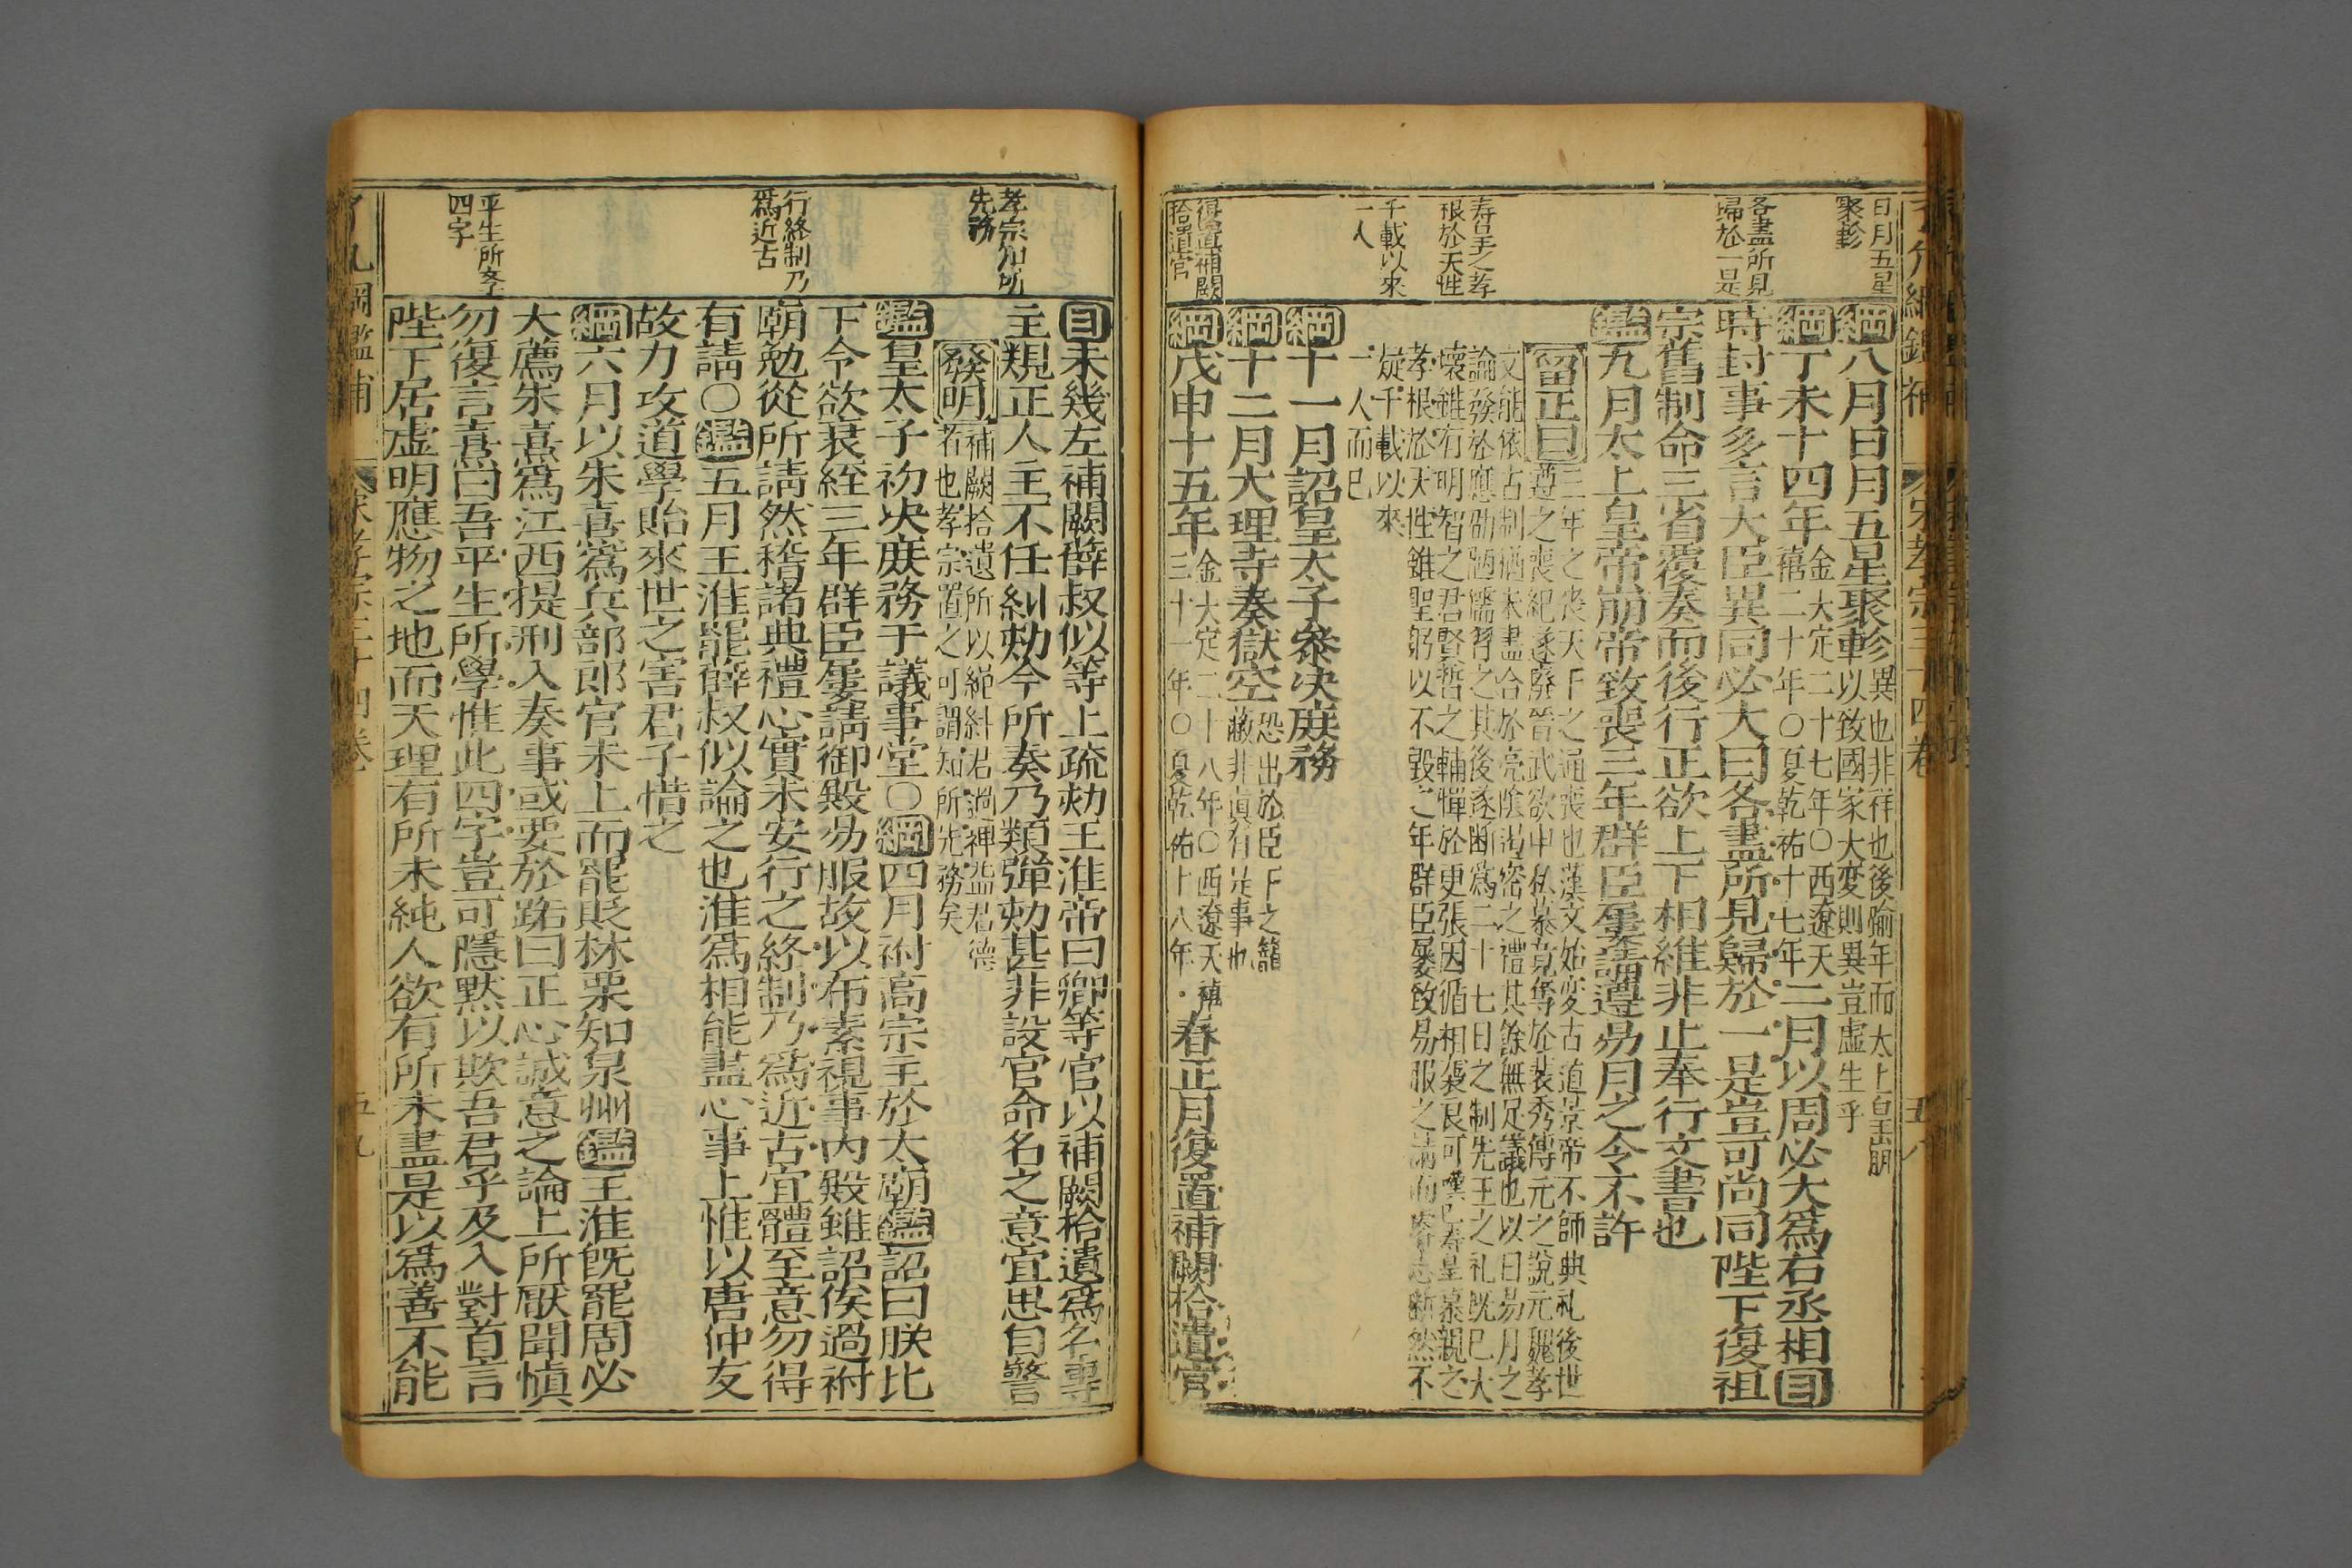 日月五星
聚軫
各盡所見
歸於一是
寿皇之孝
根於天性
千載以來
一人
復置補闕
拾遺官
綱八月日月五星聚軫異也非祥也後踰年而太上皇崩
以致國家大变則異豈虛生乎
綱丁未十四年金大定二十七年○西遼天
禧二十年○夏乾祐十七年二月以周必大爲右丞相目
時封事多言大臣異同必大曰各盡所見歸於一是豈可尚同陛下復祖
宗舊制命三省覆奏而後行正欲上下相維非止奉行文書也
鑑九月太上皇帝崩帝致喪三年群臣屢請遵易月之令不許
留正曰三年之丧天下之通喪也漢文始変古道景帝不師典礼後世
遵之喪紀遂廢晉武欲申私慕竟奪於裴秀傅元之說元魏孝
文能依古制猶未盡合於亮陰遏密之禮其餘無足議也以日易月之
論發於應劭陋儒習之其後遂断爲二十七日之制先王之礼旣已大
壊雖有明智之君賢哲之輔憚於更張因循相襲良可嘆已寿皇慕親之
孝根於天性雖聖躬以不毀之年群臣屡致易服之請而睿志断然不
疑千載以來
一人而已
綱十一月詔皇太子叅决庻務
綱十二月大理寺奏獄空恐出於臣下之籠
蔽非真有是事也
綱戊申十五年金大定二十八年○西遼天禧
三十一年○夏乾祐十八年春正月復置補闕拾遺官
了凡綱鑑補 宋孝宗三十四卷 五八
孝宗知所
先務
行終制乃
爲近古
平生所学
四字
目未幾左補闕薛叔似等上疏劾王淮帝曰卿等官以補闕拾遺爲名專
主規正人主不任糾劾今所奏乃類彈劾甚非設官命名之意宜思自警
發明補闕拾遺所以絶糾君過裨益君德
若也孝宗置之可謂知所先務矣
鑑皇太子初决庻務于議事堂○綱四月祔高宗主於太廟鑑詔曰朕比
下令欲衰絰三年群臣屢請御殿易服故以布素視事内殿雖詔俟過祔
廟勉從所請然稽諸典禮心實未安行之終制乃爲近古宜體至意勿得
有請○鑑五月王淮罷薛叔似論之也淮爲相能盡心事上惟以唐仲友
故力攻道學貽來世之害君子惜之
綱六月以朱熹爲兵部郎官未上而罷貶林栗知泉州鑑王淮旣罷周必
大薦朱熹爲江西提刑入奏事或要於路曰正心誠意之論上所厭聞慎
勿復言熹曰吾平生所學惟此四字豈可隱黙以欺吾君乎及入對首言
陛下居虛明應物之地而天理有所未純人欲有所未盡是以爲善不能
了凡綱鑑補 宋孝宗三十四卷 五九